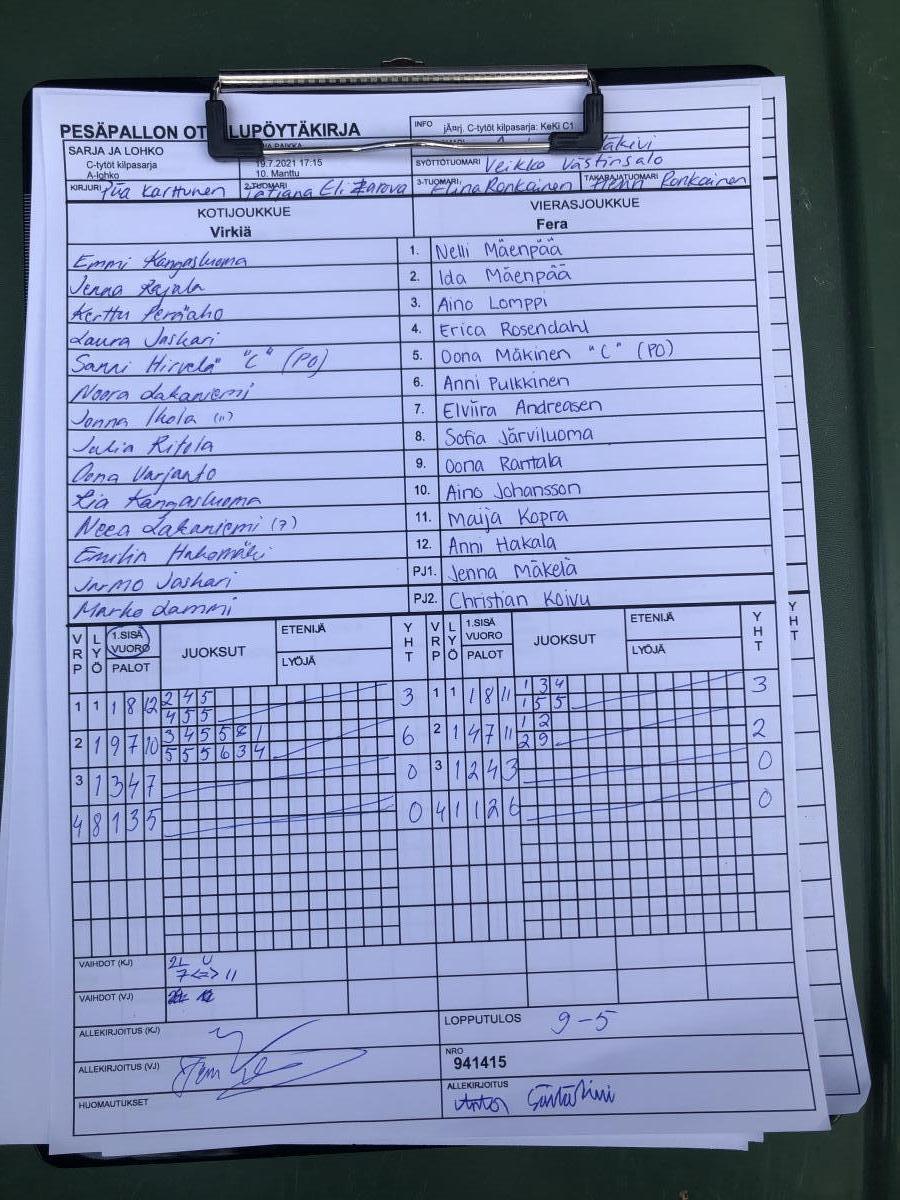 PESÄPALLON OT LUPÖYTÄKIRJA
INFO jÄnrj. C-tytöt kilpasarja: KeKi C1
SARJA JA LOHKO
C-tytöt kilpasarja
A-lohko
19.7.2021 17:15
10. Manttu
SYÖTTÖTUOMARI Veikko Västinsalo
KIRJURI Piia Karttunen
2-TUOMARI Tatiana Elizarova
3-TUOMARI Elina Ronkainen
TAKARAJATUOMARI Henri Ronkainen
KOTIJOUKKUE
Virkiä
VIERASJOUKKUE
Fera
Emmi Kangasluoma 1. Nelli Mäenpää
Jenna Rajala 2. Ida Mäenpää
Kerttu Peräaho 3. Aino Lomppi
Laura Jaskari 4. Erica Rosendahl
Sanni Hirvelä "C" (PO) 5. Oona Mäkinen "C" (PO)
Noora Lakaniemi 6. Anni Pulkkinen
Jonna Ikola (11) 7. Elviira Andreasen
Julia Ritola 8. Sofia Järviluoma
Oona Varjanto 9. Oona Rantala
Kangasluoma 10. Aino Johansson
Neea Lakaniemi (7) 11. Maija Kopra
Emilia Hakomäki 12. Anni Hakala
Jarmo Jaskari PJ1. Jenna Mäkelä
Marko Lammi PJ2. Christian Koivu
VRP LYÖ 1.SISÄ VUORO PALOT JUOKSUT ETENIJÄ LYÖJÄ YHT VRP LYÖ 1.SISÄ VUORO PALOT JUOKSUT ETENIJÄ LYÖJÄ YHT
1 1 1 8 12 2 4 5 3 1 1 1 8 11 1 3 4 3
4 5 5 1 5 5
2 1 9 7 10 3 4 5 5 1 6 2 1 4 7 11 1 2 2
5 5 5 6 3 4 2 9
3 1 3 4 7 0 3 1 2 4 3 0
4 8 1 3 5 0 4 1 1 2 6 0
VAIHDOT (KJ) 2L U
7<=> 11
VAIHDOT (VJ)
ALLEKIRJOITUS (KJ)
LOPPUTULOS 9-5
ALLEKIRJOITUS (VJ)
NRO
941415
HUOMAUTUKSET
ALLEKIRJOITUS
YHT